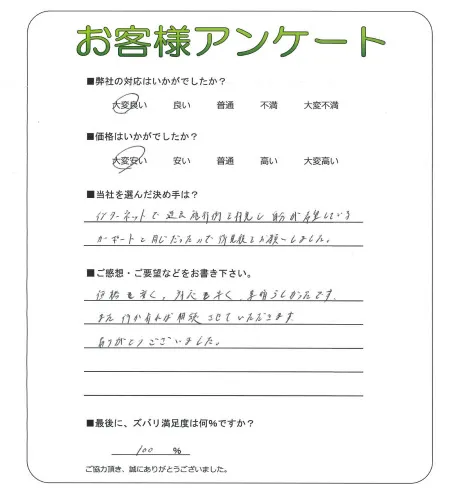 お客様アンケート
■弊社の対応はいかがでしたか？
大変良い 良い 普通 不満 大変不満
■価格はいかがでしたか？
大変安い 安い 普通 高い 大変高い
■当社を選んだ決め手は？
インターネットで過去施行例を発見し 自分が希望している
カーポートと同じだったので お願いしました。
■ご感想・ご要望などをお書き下さい。
価格も安く, 対応も早く, 素晴らしかったです.
また 何か有れば相談 させていただきます
ありがとうございました。
■最後に、ズバリ満足度は何％ですか？
100 ％
ご協力頂き、誠にありがとうございました。